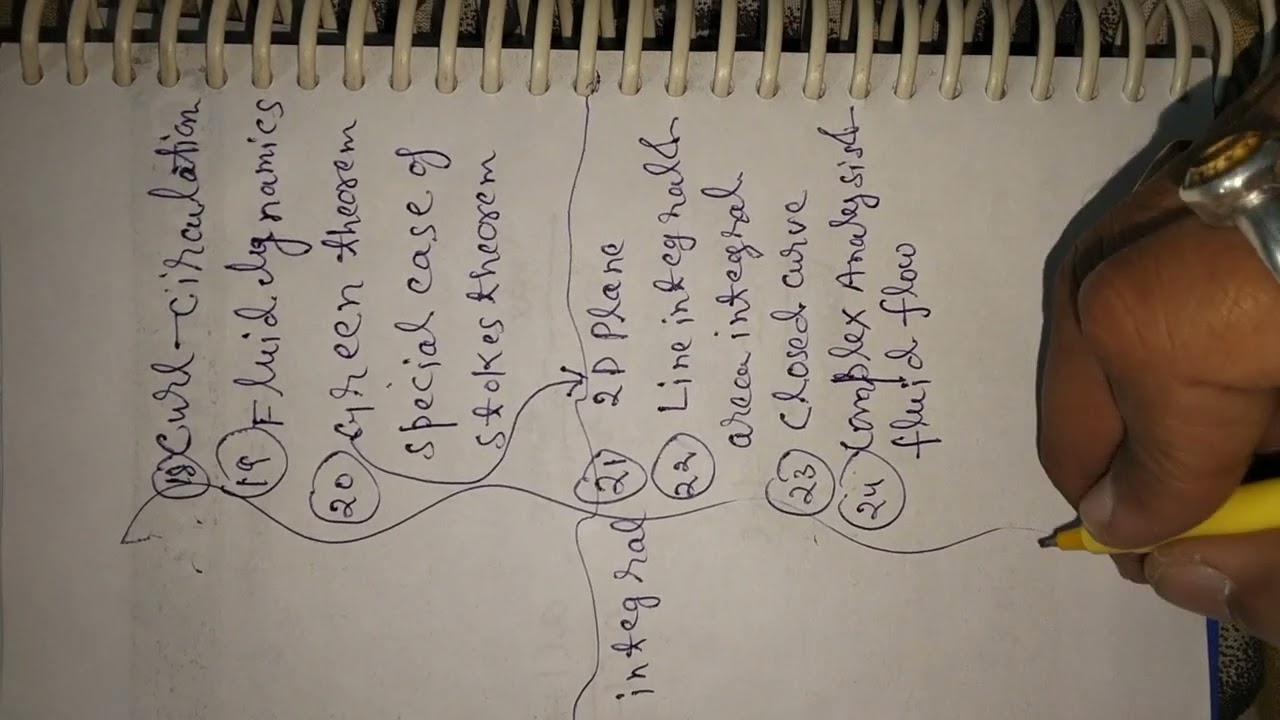 18 Curl-circulation
19 Fluid dynamics
20 Green theorem
special case of
stokes theorem
21 2D Plane
22 Line integral &
area integral
23 Closed curve
24 Complex Analysis &
fluid flow
integral